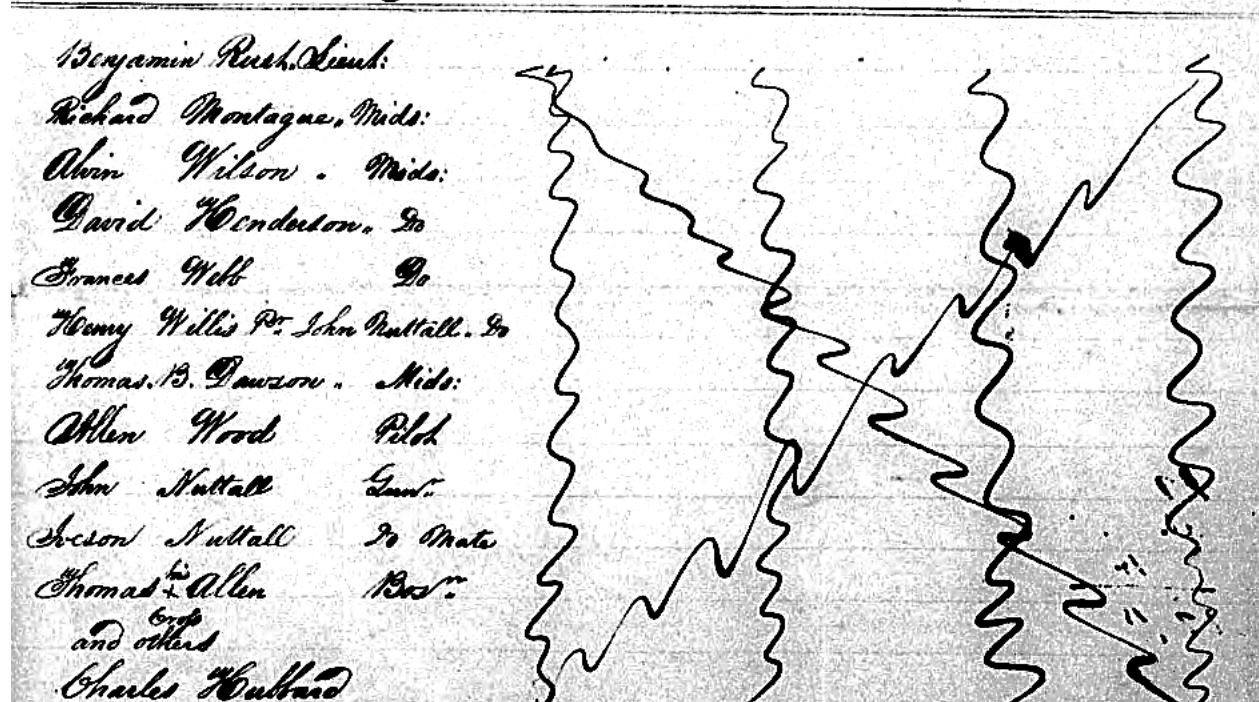 Benjamin Rush, Lieut:
Richard Montague, Mids:
Alvin Wilson. Mids:
David Henderson. Do
Frances Webb Do
Henry Willis Pr. John Nuttall. Do
Thomas. B. Dawson. Mids:
Allen Wood Pilot
John Nuttall Gunr.
Iveson Nuttall Do Mate
Thomas his + Allen Bosn.
Cross
and others
Charles Hubbard